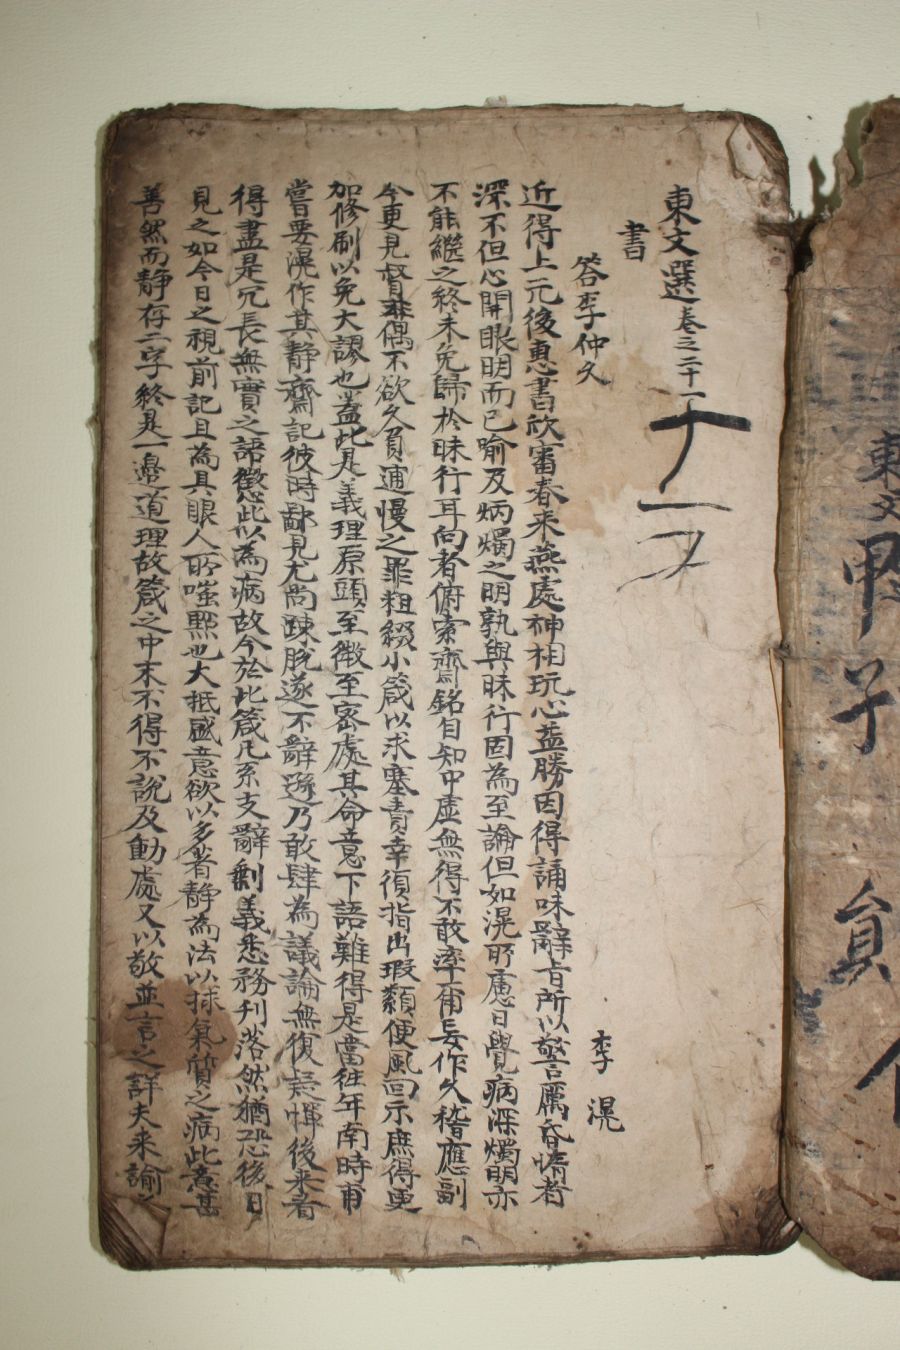 東文選卷之二十一
十一
書
答李仲久
李滉
近得上元後惠書欣審春來燕處神相玩心益勝因得誦味辭旨所以警厲昏惰者
深不但心開眼明而已喻及炳燭之明孰與昧行固為至論但如滉所慮日覺病深燭明亦
不能繼之終未免歸於昧行耳向者俯索齋銘自知中虛無得不敢率爾妄作久稽應副
今更見督非偶不欲久負逋慢之罪粗綴小箴以求塞責幸須指出瑕纇便風回示庶得更
加修刷以免大謬也蓋此是義理原頭至微至密處其命意下語難得是當往年南時甫
嘗要滉作其靜齋記彼時鄙見尤尚踈脫遂不辭遜乃敢肆為議論無復疑憚後來看
得盡是冗長無實之語懲此以為病故今於此箴凡系支辭剩義悉務刊落然猶恐後日
見之如今日之視前記且為具眼人所嗤點也大抵盛意欲以多著靜為法以捄氣質之病此意甚
善然而靜存二字終是一邊道理故箴之中末不得不說及動處又以敬並言之詳夫來諭之
東文
子
貟